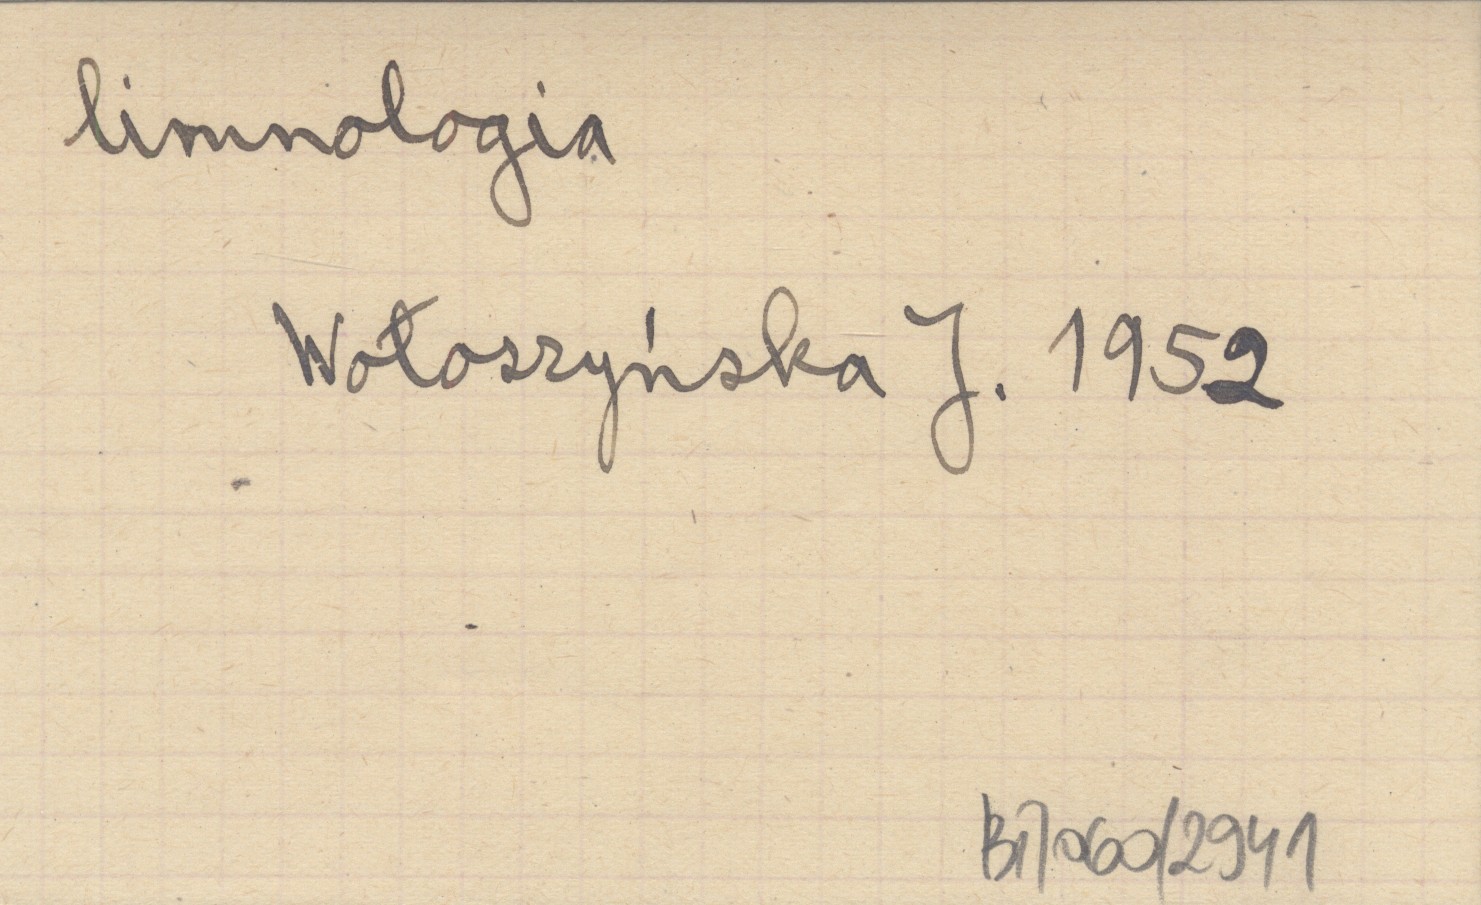 limnologia
Wołoszyńska J. 1952
BI/060/2941